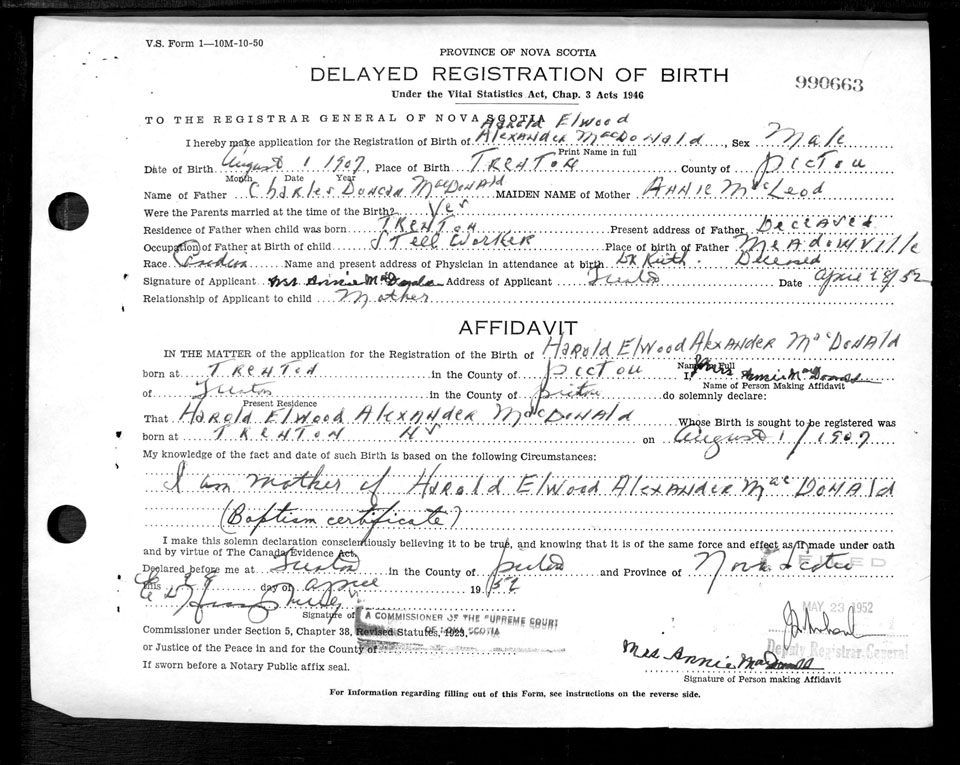 V.S. Form 1—10M-10-50
PROVINCE OF NOVA SCOTIA
DELAYED REGISTRATION OF BIRTH
990663
Under the Vital Statistics Act, Chap. 3 Acts 1946
TO THE REGISTRAR GENERAL OF NOVA SCOTIA
Harold Elwood
I hereby make application for the Registration of Birth of Alexander MacDonald, Sex Male
Print Name in full
Date of Birth August 1 1907, Place of Birth Trenton County of Pictou
Month Date Year
Name of Father Charles Duncan MacDonald MAIDEN NAME of Mother Annie MacLeod
Were the Parents married at the time of the Birth? Yes
Residence of Father when child was born Trenton Present address of Father Deceased
Occupation of Father at Birth of child Steel Worker Place of birth of Father Meadowville
Race Name and present address of Physician in attendance at birth Dr Keith. Deceased
Signature of Applicant Mrs Annie MacDonald Address of Applicant Trenton Date April 29/52
Relationship of Applicant to child Mother
AFFIDAVIT
IN THE MATTER of the application for the Registration of the Birth of Harold Elwood Alexander MacDonald
born at Trenton in the County of Pictou I, Mrs Annie MacDonald
Name in Full
Name of Person Making Affidavit
of Trenton in the County of Pictou do solemnly declare:
Present Residence
That Harold Elwood Alexander MacDonald Whose Birth is sought to be registered was
born at Trenton NS on August 1/1907
My knowledge of the fact and date of such Birth is based on the following Circumstances:
I am mother of Harold Elwood Alexander MacDonald
(Baptism certificate)
I make this solemn declaration conscientiously believing it to be true, and knowing that it is of the same force and effect as if made under oath
and by virtue of The Canada Evidence Act.
Declared before me at Trenton in the County of Pictou and Province of Nova Scotia
this 29 day of April 1952
MAY 23 1952
Signature of
A COMMISSIONER OF THE SUPREME COURT
OF NOVA SCOTIA
Commissioner under Section 5, Chapter 38, Revised Statutes, 1923,
or Justice of the Peace in and for the County of
Deputy Registrar General
If sworn before a Notary Public affix seal.
Mrs Annie MacDonald
Signature of Person making Affidavit
For Information regarding filling out of this Form, see instructions on the reverse side.